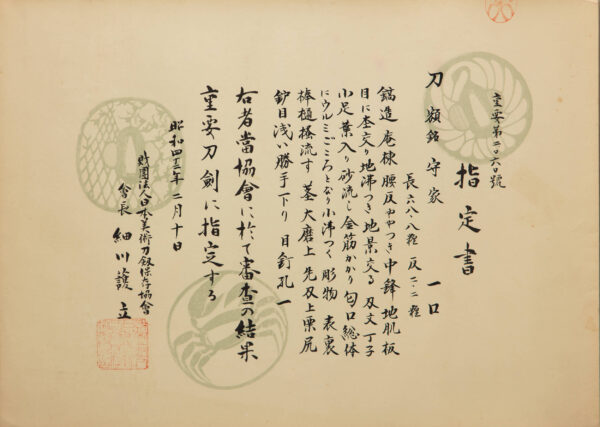 重要第二〇六〇號
指定書
刀 額銘 守家 一口
長六八・八糎 反二・二糎
鎬造 庵棟 腰反ややつき 中鋒 地肌板
目に杢交り 地沸つき 地景交る 刃文丁子
小足葉入り 砂流し金筋かかり 匂口総体
にウルミごころとなり 小沸つく 彫物 表裏
棒樋掻流す 茎大磨上 先刃上栗尻
鈩目浅い勝手下り 目釘孔一
右者當協會に於て審査の結果
重要刀劍に指定する
昭和四 年二月十日
財團法人日本美術刀劔保存協會
會長 細川護立